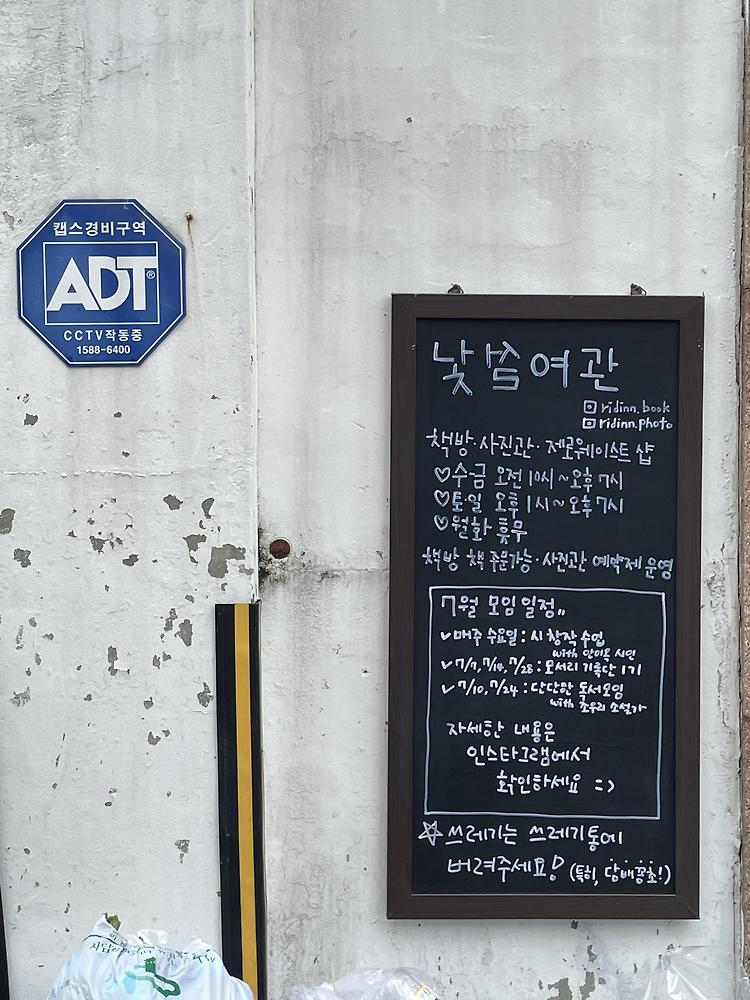 캡스경비구역
ADT®
CCTV작동중
1588-6400
여관
ridinn.book
ridinn.photo
책방·사진관·제로웨이스트 샵
♡수-금 오전 10시~오후 7시
♡토·일 오후 1시~오후 7시
♡월화 휴무
책방 책 주문가능·사진관 예약제 운영
7월 모임 일정,,
✓매주 수요일: 시 창작 수업
with 안미옥 시인
✓7/7, 7/14, 7/28: 모서리 기록단 1기
✓7/10, 7/24: 단단한 독서모임
with 조우리 소설가
자세한 내용은
인스타그램에서
확인하세요 :)
☆쓰레기는 쓰레기통에
버려주세요! (특히, 담배꽁초!)